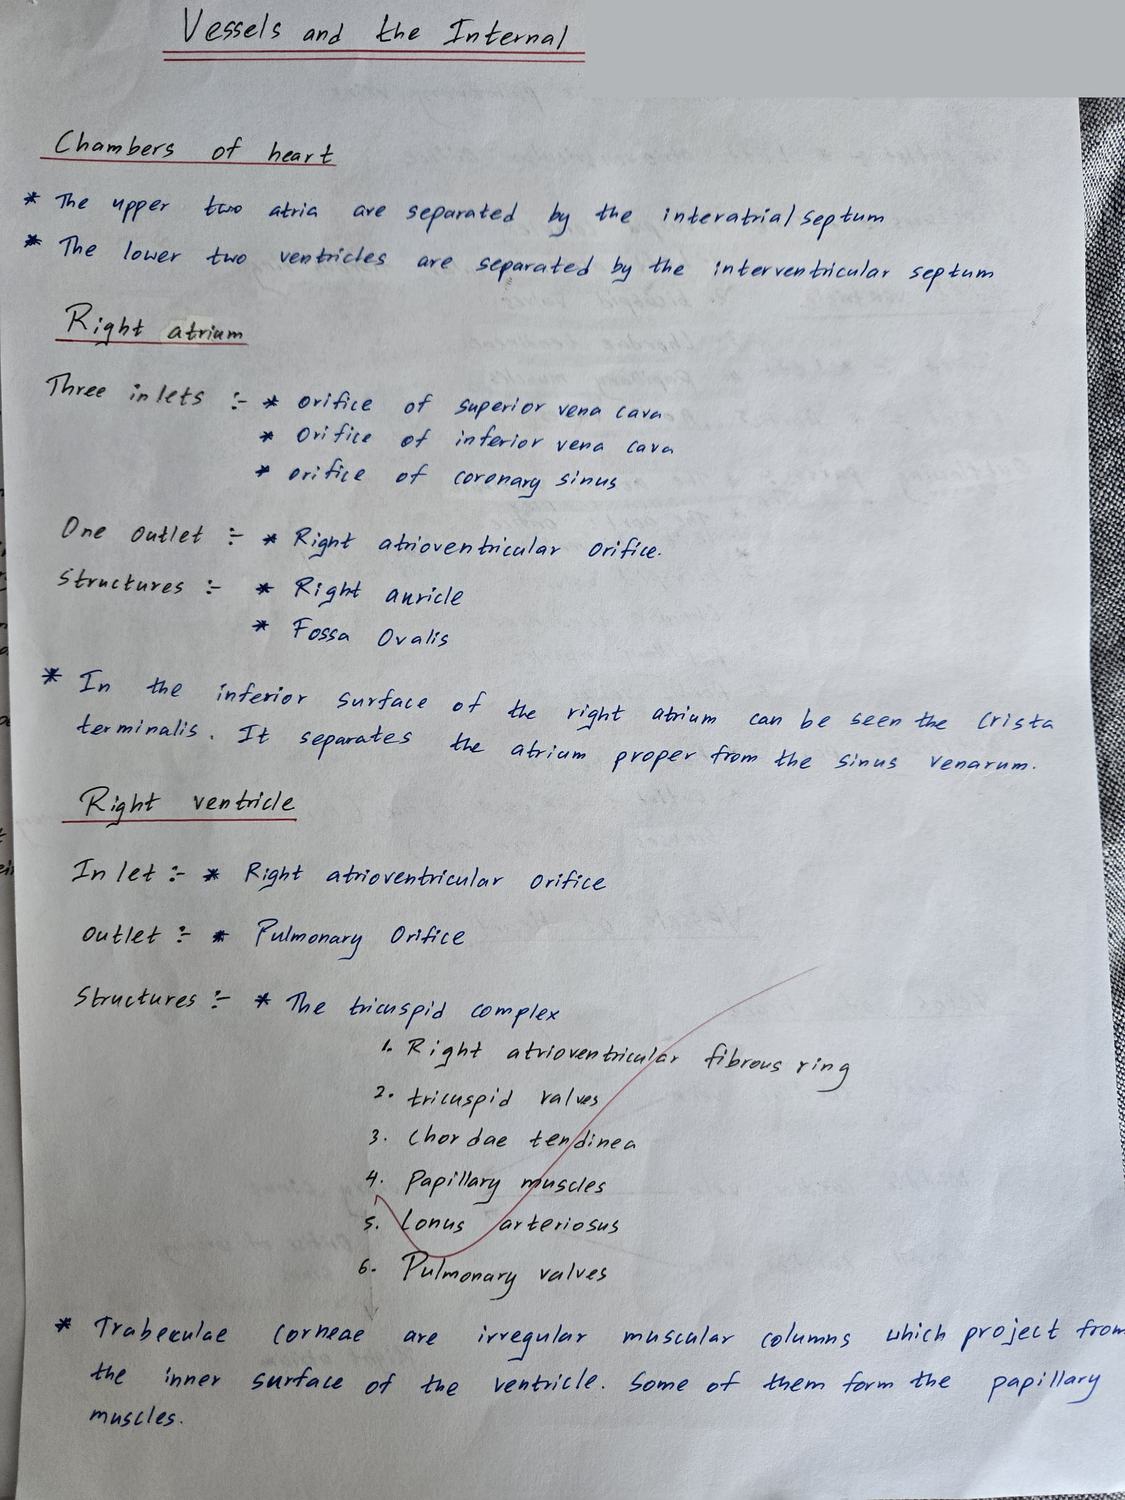 Vessels and the Internal
Chambers of heart
* The upper two atria are separated by the interatrial septum
* The lower two ventricles are separated by the interventricular septum
Right atrium
Three inlets :- * Orifice of superior vena cava
* Orifice of inferior vena cava
* orifice of coronary sinus
One outlet :- * Right atrioventricular orifice.
Structures :- * Right auricle
* Fossa Ovalis
* In the inferior surface of the right atrium can be seen the Crista
terminalis. It separates the atrium proper from the sinus venarum.
Right ventricle
Inlet :- * Right atrioventricular orifice
Outlet :- * Pulmonary Orifice
Structures :- * The tricuspid complex
1. Right atrioventricular fibrous ring
2. tricuspid valves
3. Chordae tendinea
4. Papillary muscles
5. Conus arteriosus
6. Pulmonary valves
* Trabeculae Corneae are irregular muscular columns which project from
the inner surface of the ventricle. Some of them form the papillary
muscles.